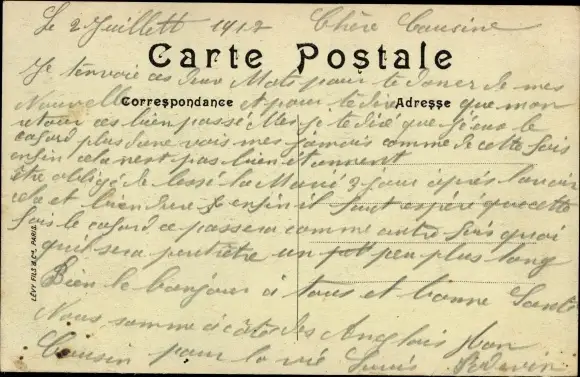 Le 2 Juillett 1917 Chère Cousine
Carte Postale
Je tenvoie ces deux Mots pour te doner de mes
Nouvelle Et pour te dire que mon
Correspondance Adresse
retour ces bien passé Mes je te diré que j'ai eue le
cafard plus dune vois mes jamais comme de cette fois
enfin cela nest pas bien étonnent
être obligé de lessé la Marié 2 jour après lavoir
cela et bien dure enfin il faut espéré que cette
fois le cafard ce passera comme autre fois quoi
quil sera peut être un pet peu plus long
Bien le bonjour a tous et bonne Santé
Nous somme a côtés des Anglais Ton
Cousin pour la vie Louis
LÉVY FILS & Cie, PARIS